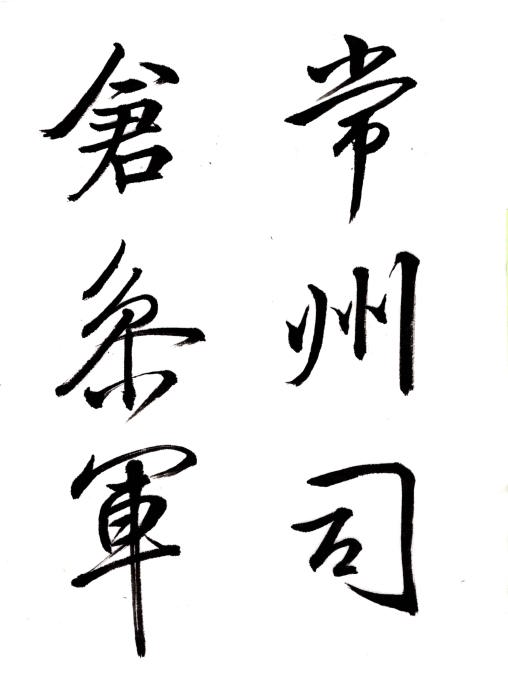 常州司
倉叅軍